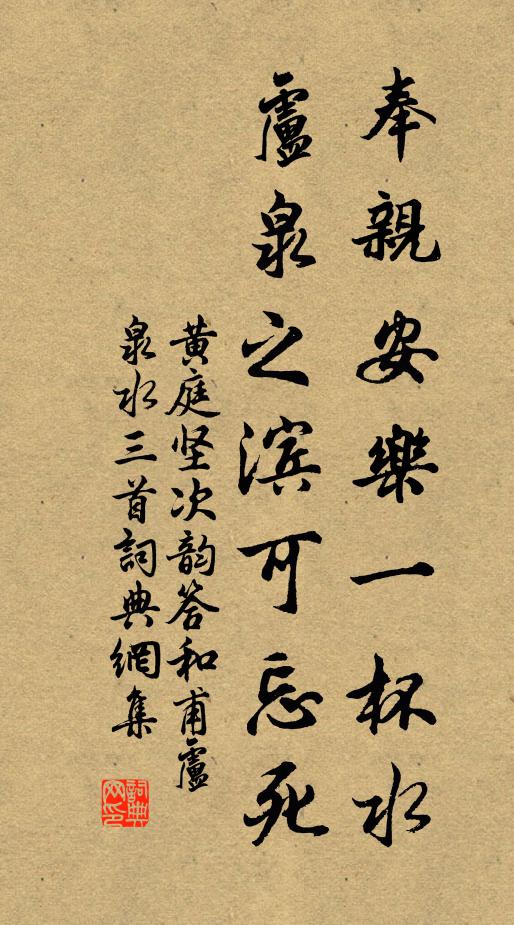 奉親安樂一杯水
盧泉之滨可忘死
黄庭坚次韵答和甫盧
泉水三首詞典網集
詞典
网印